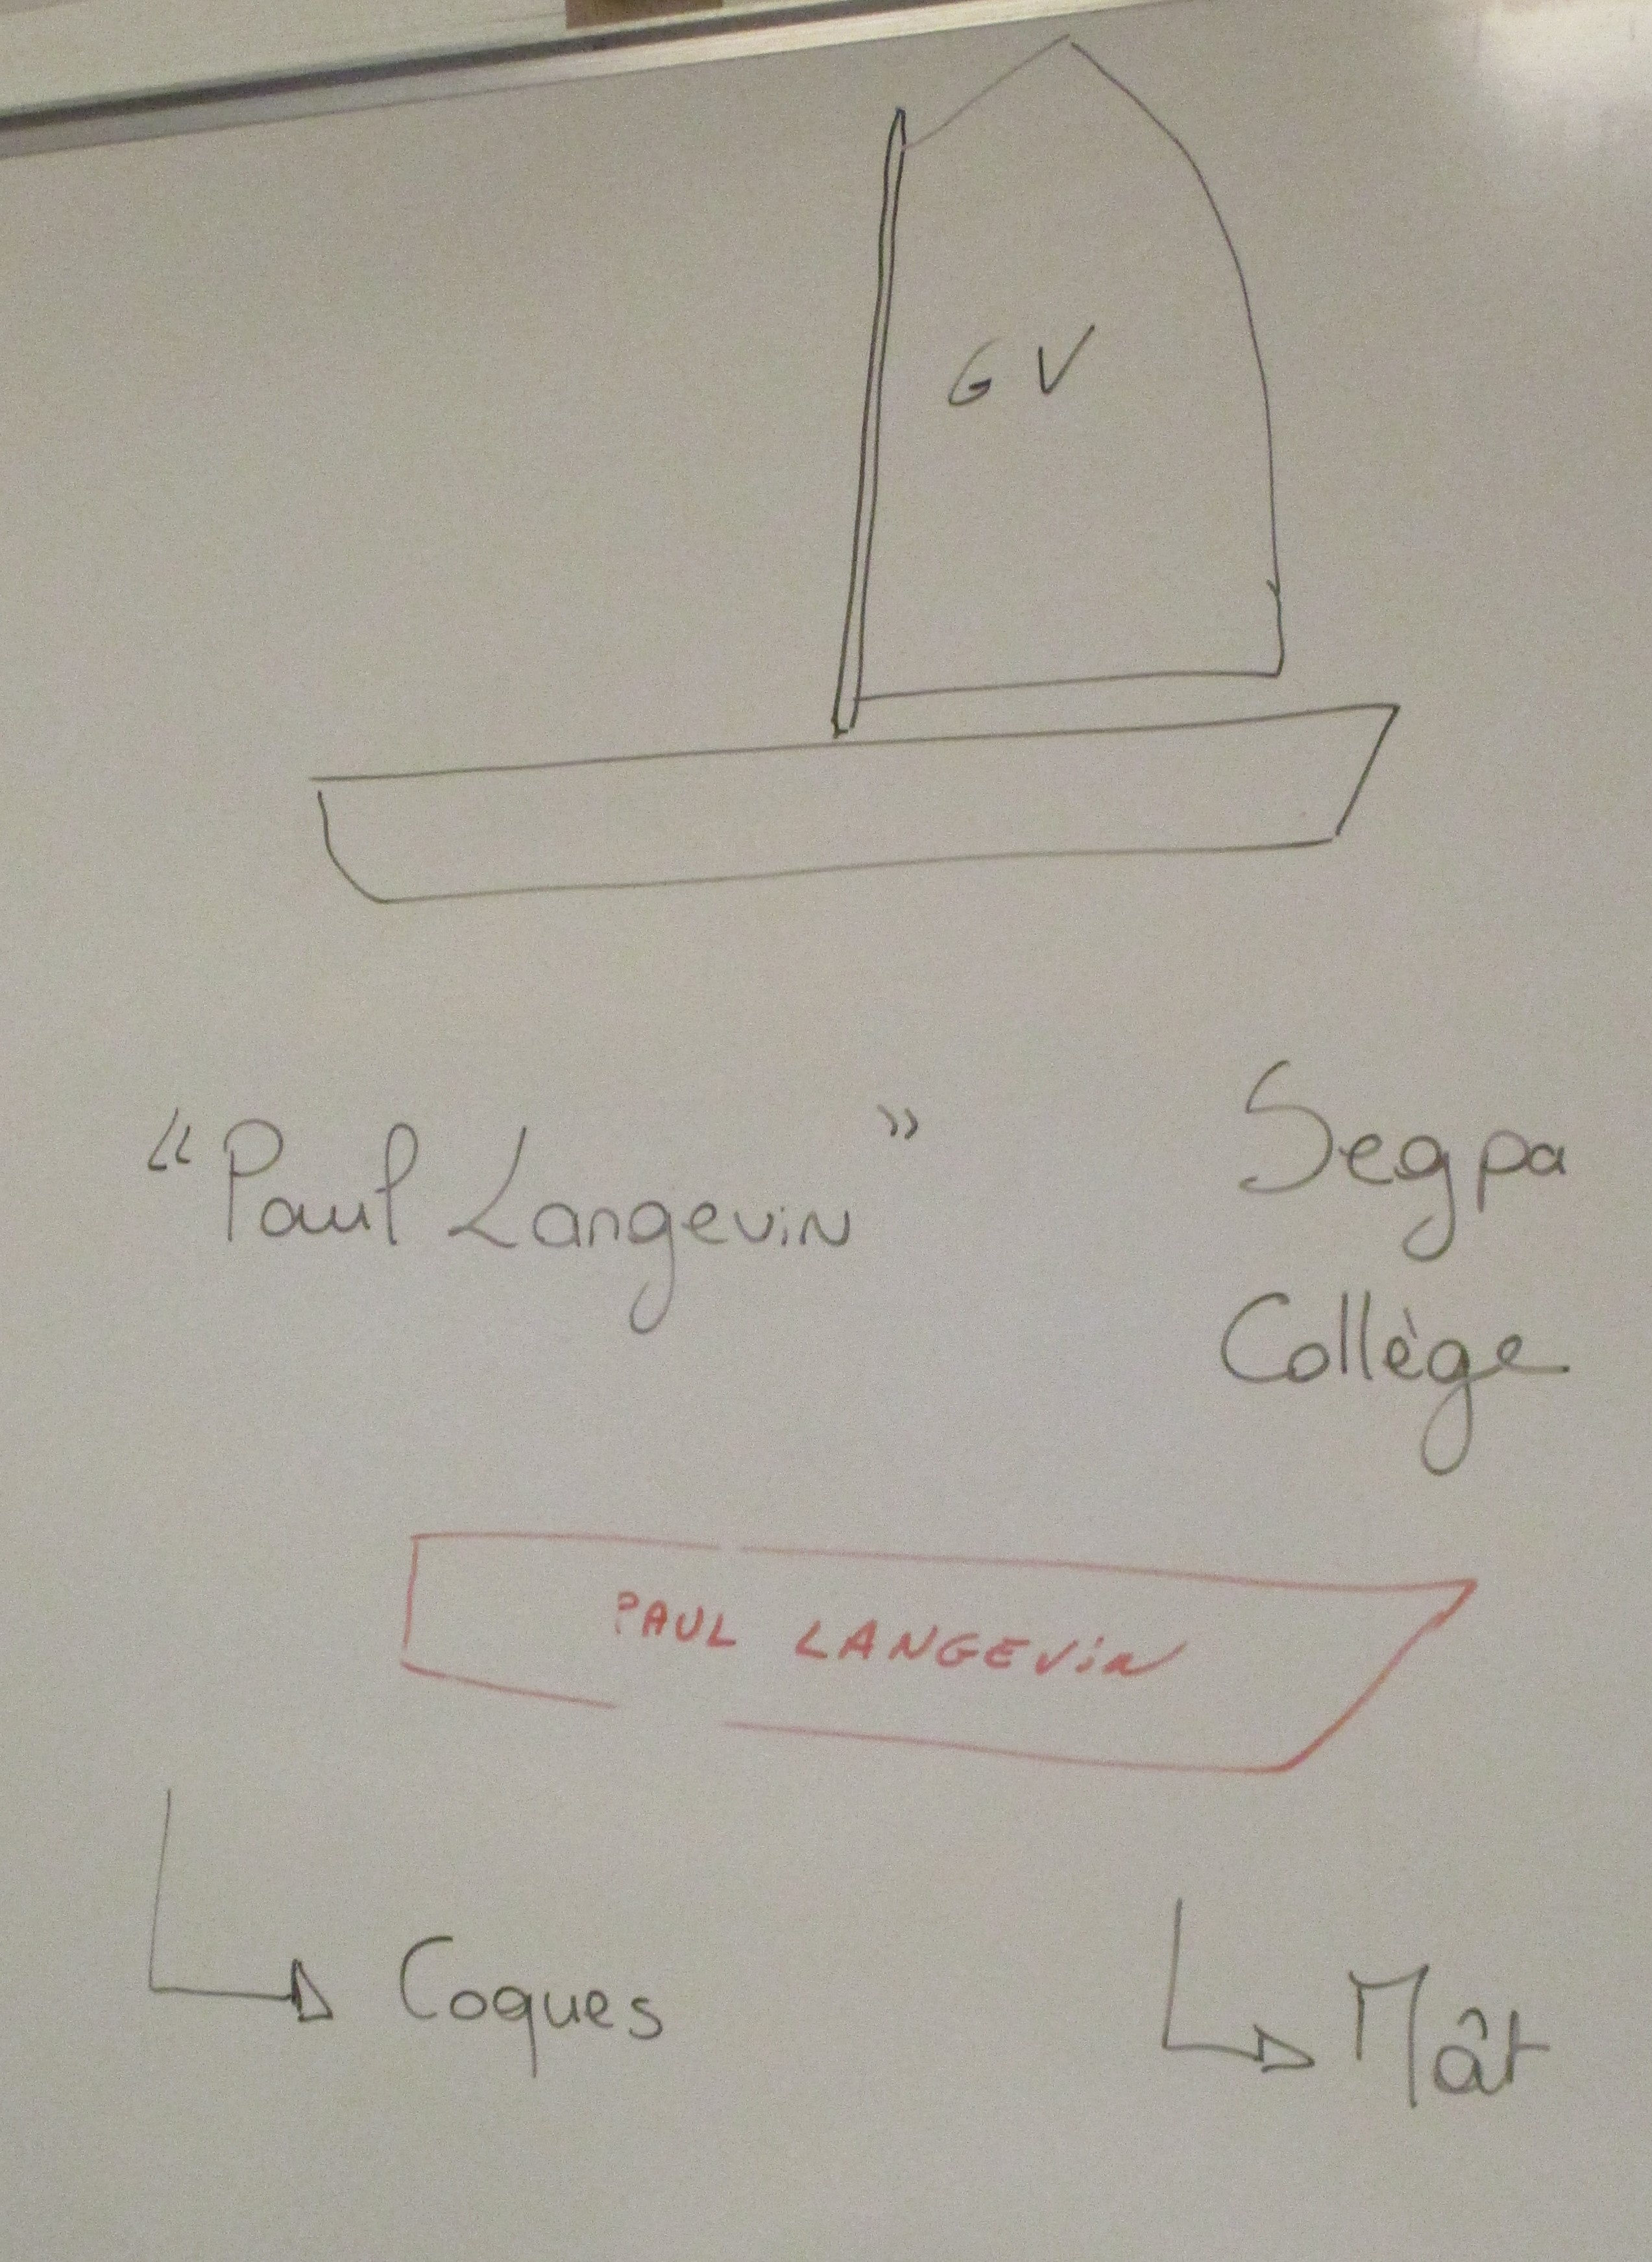 G V
"Paul Langevin"
Segpa
Collège
PAUL LANGEViN
Coques
Mât